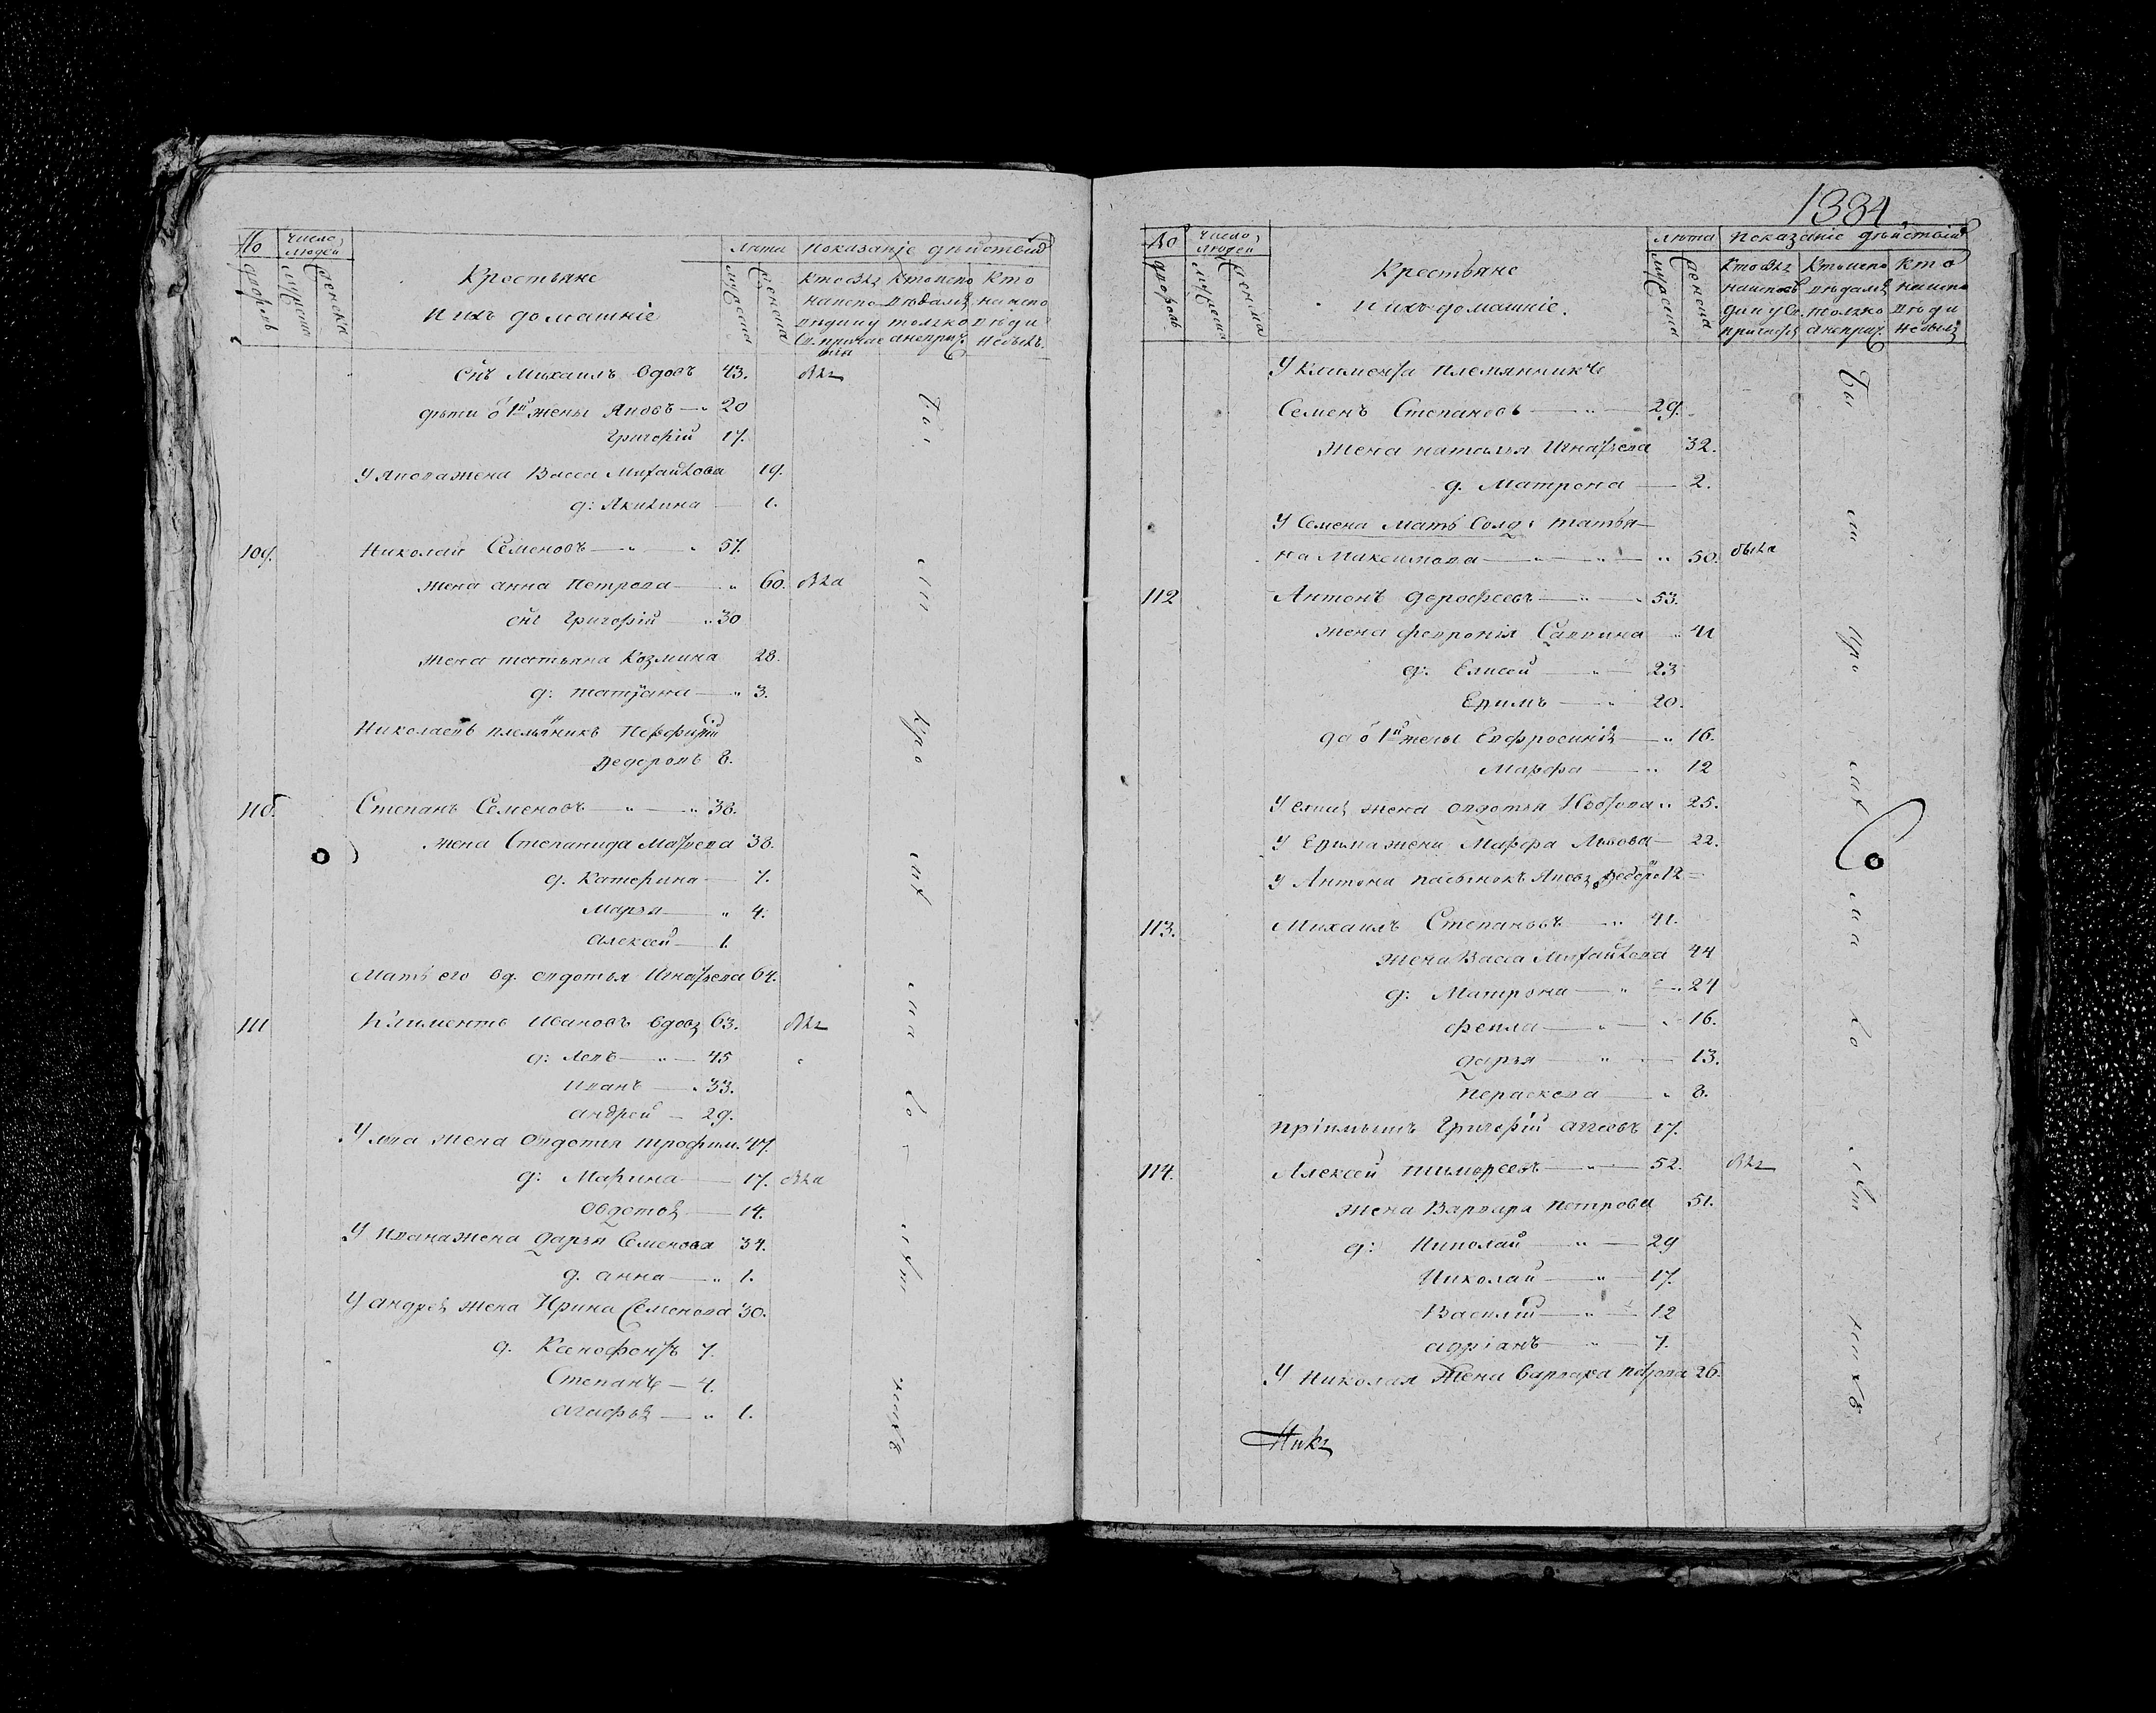 № дворовъ
число людей
мужеска
женска
Крестьяне
и ихъ домашніе
лѣта
мужеска
женска
показаніе дѣйствій
кто былъ на исповѣди и у Св. причастія
кто исповѣдался только а не прич.
кто на исповѣди не былъ
снъ Михаилъ вдовъ 43. былъ
дѣти о 1й жены Яковъ — 20
Григорій 17.
У Якова жена Васса Михайлова 19.
д: Акилина — 1.
109. Николай Семеновъ — 57.
жена анна Петрова — 60. была
снъ Григорій — 30
жена татьяна Козмина 28.
д: татіана — 3.
Николаевъ племянникъ Порфирій
Ѳедоровъ 8.
110. Степанъ Семеновъ — 38.
жена Степанида Матѳеева 38.
д. Катерина — 7.
Марья — 4.
алексей — 1.
Мать его вд. овдотья Игнатьева 64.
111 Климентъ Ивановъ вдовъ 63. былъ
д: Левъ — 45
Иванъ — 33.
андрей — 29.
У льва жена Овдотья трофим. 47.
д: Марина — 17. была
Овдотья — 14.
У Ивана жена дарья Семенова 34.
д. анна — 1.
У андрея жена Ирина Семенова 30.
д. Ксенофонтъ 7.
Степанъ — 4.
агафья — 1.
1384
№ дворовъ
число людей
мужеска
женска
Крестьяне
и ихъ домашніе.
лѣта
мужеска
женска
показаніе дѣйствій
кто былъ на исповѣди и у Св. причастія
кто исповѣдался только а не прич.
кто на исповѣди не былъ
У Климента племянникъ
Семенъ Степановъ — 29.
жена наталья Игнатьева 32.
д. Матрона — 2.
У Семена мать Солд: татья-
на Максимова — 50. была
112 Антонъ дорофеевъ — 53.
жена февронія Саввина 41
д: Елисей — 23
Ефимъ — 20.
да о 1й жены Евфросинія — 16.
Марфа — 12
У елис. жена овдотья 25.
У Ефима жена Марфа Львова — 22.
У Антона пасынокъ Яковъ Ѳедоро 12
113. Михаилъ Степановъ — 41.
жена Васса Михайлова 44
д: Матрона — 24
фекла — 16.
дарья — 13.
Параскева — 8.
пріимышъ Григорій 17.
114. Алексей тимофеевъ — 52. былъ
жена Варвара Петрова 51.
д: Николай — 29
Николай — 17.
Василій — 12
адріанъ — 7.
У Николая жена варвара петрова 26.